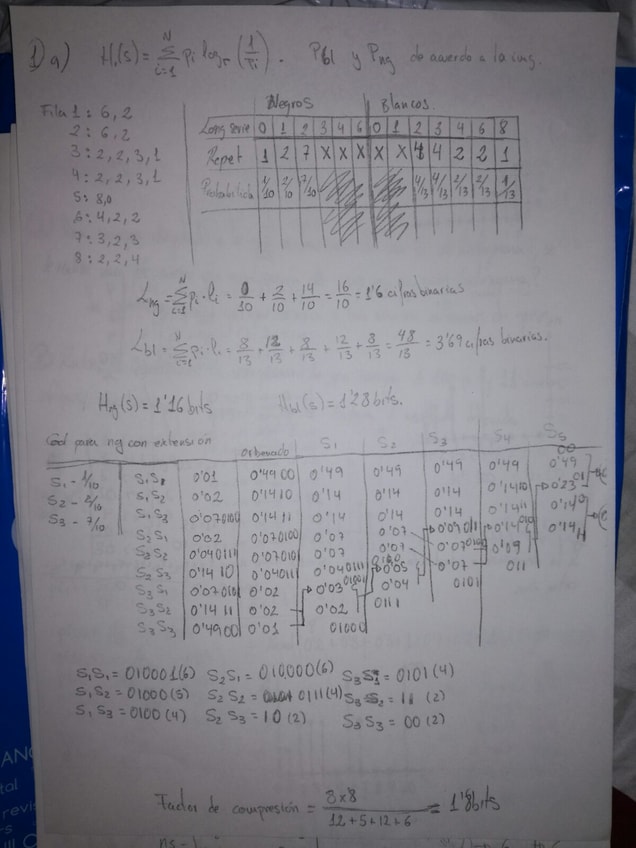 1) a) H₁(s) = Σ pi logr (1/pi) . Pbl y Png de acuerdo a la img.
i=1 N
Fila 1: 6, 2
2: 6, 2
3: 2, 2, 3, 1
4: 2, 2, 3, 1
5: 8, 0
6: 4, 2, 2
7: 3, 2, 3
8: 2, 2, 4
Negros Blancos
Long serie 0 1 2 3 4 6 0 1 2 3 4 6 8
Repet 1 2 7 X X X X X 4 4 2 2 1
Probabilida 1/10 2/10 7/10 4/13 4/13 2/13 2/13 1/13
Lng = Σ pi · li = 0/10 + 2/10 + 14/10 = 16/10 = 1'6 cifras binarias
Lbl = Σ pi · li = 8/13 + 12/13 + 8/13 + 12/13 + 8/13 = 48/13 = 3'69 cifras binarias.
Hng(s) = 1'16 bits Hbl(s) = 1'28 bits.
Cod para ng con extensión ordenado S1 S2 S3 S4 S5
S1 - 1/10 S1S1 0'01 0'49 00 0'49 0'49 0'49 0'49 0'49 00
S2 - 2/10 S1S2 0'02 0'14 10 0'14 0'14 0'14 0'14 10 0'23 01
S3 - 7/10 S1S3 0'07 0100 0'14 11 0'14 0'14 0'14 0'14 11 0'14 10
S2S1 0'02 0'07 0100 0'07 0'07 0'09 011 0'14 010 0'14 11
S2S2 0'04 0111 0'07 0101 0'07 0'07 0'07 0100 0'09 011
S2S3 0'14 10 0'04 0111 0'04 0111 0'05 0110 0'07 0101
S3S1 0'07 0101 0'02 0'03 01001 0'04 0111
S3S2 0'14 11 0'02 0'02 01000
S3S3 0'49 00 0'01
S1S1 = 010001 (6) S2S1 = 010000 (6) S3S1 = 0101 (4)
S1S2 = 01000 (5) S2S2 = 0111 (4) S3S2 = 11 (2)
S1S3 = 0100 (4) S2S3 = 10 (2) S3S3 = 00 (2)
Factor de compresión = 8x8 / 12+5+12+6 = 1'8 bits